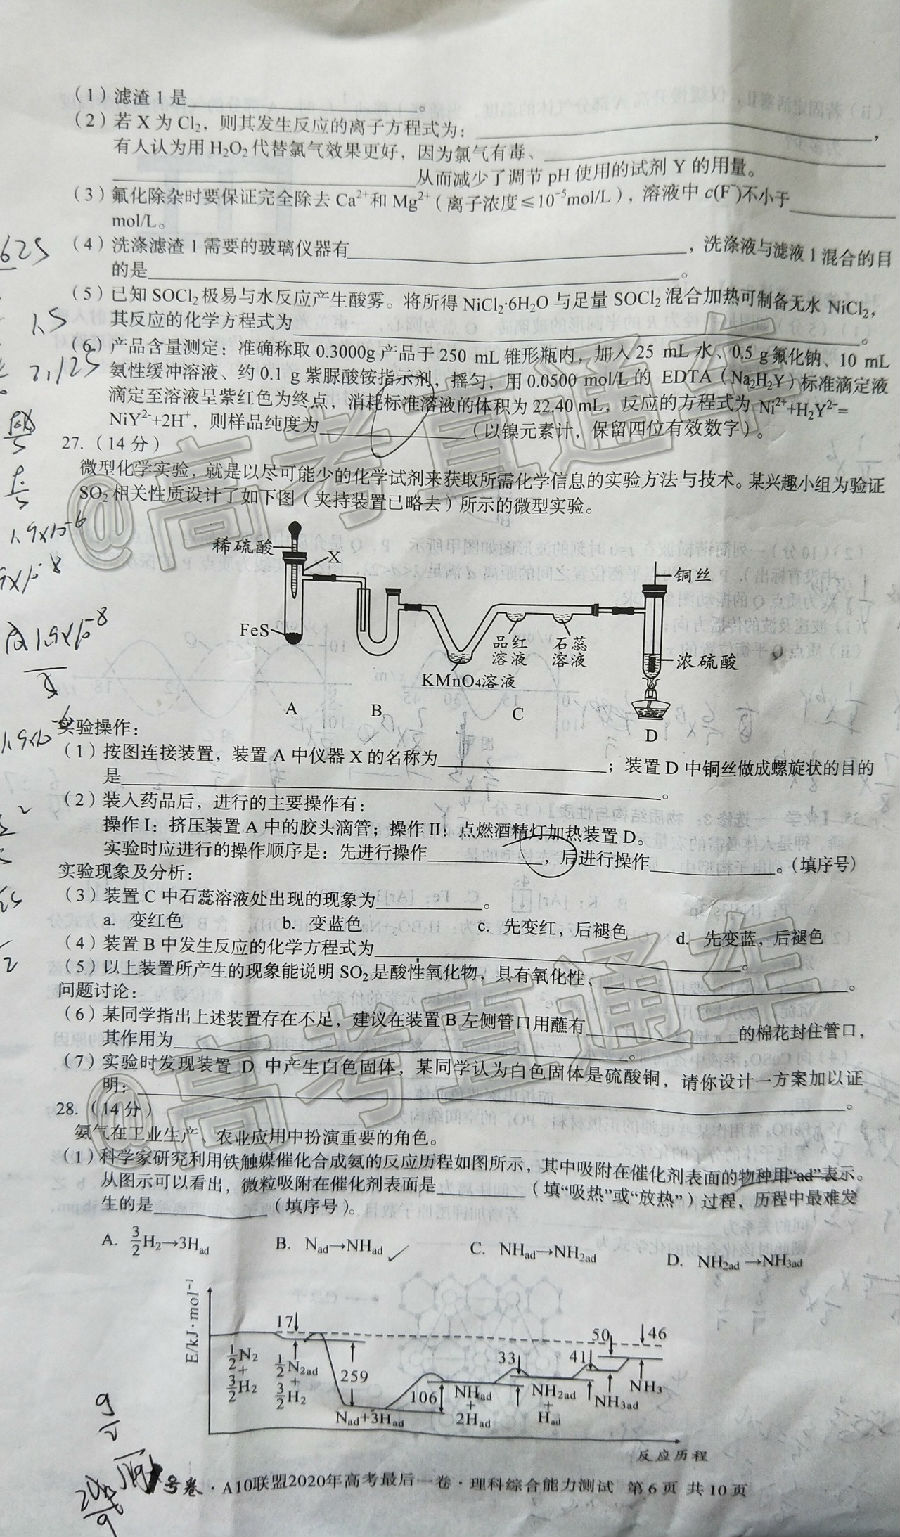 (1)滤渣1是____________。
(2)若X为Cl₂,则其发生反应的离子方程式为:____________,
有人认为用H₂O₂代替氯气效果更好,因为氯气有毒、____________
____________从而减少了调节pH使用的试剂Y的用量。
(3)氟化除杂时要保证完全除去Ca²⁺和Mg²⁺(离子浓度≤10⁻⁵mol/L),溶液中c(F⁻)不小于____________
mol/L。
(4)洗涤滤渣1需要的玻璃仪器有____________,洗涤液与滤液1混合的目
的是____________。
(5)已知SOCl₂极易与水反应产生酸雾。将所得NiCl₂·6H₂O与足量SOCl₂混合加热可制备无水NiCl₂,
其反应的化学方程式为____________。
(6)产品含量测定:准确称取0.3000g产品于250 mL锥形瓶内,加入25 mL水、0.5 g氟化钠、10 mL
氨性缓冲溶液、约0.1 g紫脲酸铵指示剂,摇匀,用0.0500 mol/L的 EDTA(Na₂H₂Y)标准滴定液
滴定至溶液呈紫红色为终点,消耗标准溶液的体积为22.40 mL,反应的方程式为Ni²⁺+H₂Y²⁻=
NiY²⁻+2H⁺,则样品纯度为____________(以镍元素计,保留四位有效数字)。
27.(14分)
微型化学实验,就是以尽可能少的化学试剂来获取所需化学信息的实验方法与技术。某兴趣小组为验证
SO₂相关性质设计了如下图(夹持装置已略去)所示的微型实验。
稀硫酸
X
FeS
铜丝
品红
溶液
石蕊
溶液
浓硫酸
KMnO₄溶液
A
B
C
D
实验操作:
(1)按图连接装置,装置A中仪器X的名称为____________;装置D中铜丝做成螺旋状的目的
是____________。
(2)装入药品后,进行的主要操作有:
操作I:挤压装置A中的胶头滴管;操作II:点燃酒精灯加热装置D。
实验时应进行的操作顺序是:先进行操作____________,后进行操作____________。(填序号)
实验现象及分析:
(3)装置C中石蕊溶液处出现的现象为____________。
a. 变红色 b. 变蓝色 c. 先变红,后褪色 d. 先变蓝,后褪色
(4)装置B中发生反应的化学方程式为____________。
(5)以上装置所产生的现象能说明SO₂是酸性氧化物,具有氧化性、____________。
问题讨论:
(6)某同学指出上述装置存在不足,建议在装置B左侧管口用蘸有____________的棉花封住管口,
其作用为____________。
(7)实验时发现装置D中产生白色固体,某同学认为白色固体是硫酸铜,请你设计一方案加以证
明:____________。
28.(14分)
氨气在工业生产、农业应用中扮演重要的角色。
(1)科学家研究利用铁触媒催化合成氨的反应历程如图所示,其中吸附在催化剂表面的物种用“ad”表示。
从图示可以看出,微粒吸附在催化剂表面是________(填“吸热”或“放热”)过程,历程中最难发
生的是____________(填序号)。
A. 3/2H₂→3Had B. Nad→NHad C. NHad→NH₂ad D. NH₂ad→NH₃ad
E/kJ·mol⁻¹
17
50
46
33
41
259
106
1/2N₂+3/2H₂
1/2N₂ad+3/2H₂
Nad+3Had
NHad+2Had
NH₂ad+Had
NH₃ad
NH₃
反应历程
号卷·A10联盟2020年高考最后一卷·理科综合能力测试 第6页 共10页
@高考直通车
@高考直通车